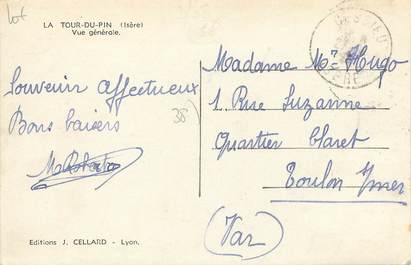 Lot
LA TOUR-DU-PIN (Isère)
Vue générale.
Souvenir affectueux
Bons baisers
38
Madame Mme Hugo
1 Rue Suzanne
Quartier Claret
Toulon s/mer
(Var)
Editions J. CELLARD - Lyon.